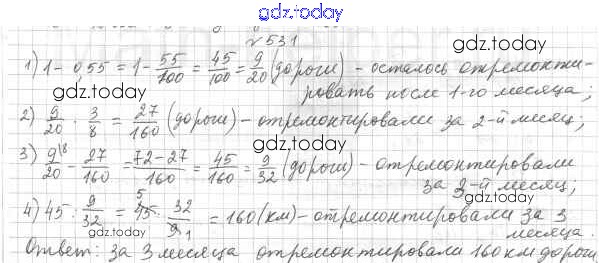 gdz.today
№531
1) 1 - 0,55 = 1 - 55/100 = 45/100 = 9/20 (дороги) - осталось отремонти-
ровать после 1-го месяца;
gdz.today
gdz.today
2) 9/20 · 3/8 = 27/160 (дороги) - отремонтировали за 2-й месяц;
3) 9/20 \8 - 27/160 = 72-27/160 = 45/160 = 9/32 (дороги) - отремонтировали
за 3-й месяц;
4) 45 : 9/32 = 45 5 · 32/9 1 = 160 (км) - отремонтировали за 3
месяца.
gdz.today
gdz.today
Ответ: за 3 месяца отремонтировали 160 км дороги